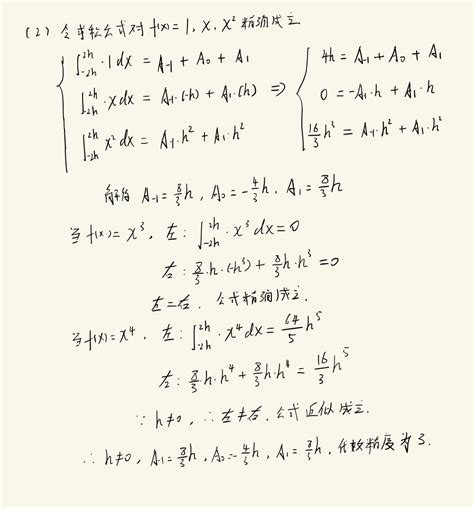 (2) 令求积公式对 f(x) = 1, x, x² 精确成立
{ ∫_{-2h}^{2h} · 1 dx = A₋₁ + A₀ + A₁ ⇒ { 4h = A₋₁ + A₀ + A₁
∫_{-2h}^{2h} · x dx = A₋₁·(-h) + A₁·(h) 0 = -A₋₁·h + A₁·h
∫_{-2h}^{2h} x² dx = A₋₁·h² + A₁·h² 16/3 h³ = A₋₁·h² + A₁·h²
解得 A₋₁ = 8/3 h, A₀ = -4/3 h, A₁ = 8/3 h
当 f(x) = x³, 左: ∫_{-2h}^{2h} · x³ dx = 0
右: 8/3·h·(-h³) + 8/3 h·h³ = 0
左=右, 公式精确成立.
当 f(x) = x⁴, 左: ∫_{-2h}^{2h} · x⁴ dx = 64/5 h⁵
右: 8/3·h·h⁴ + 8/3 h·h⁴ = 16/3 h⁵
∵ h≠0, ∴ 左≠右, 公式近似成立.
∴ h≠0, A₋₁ = 8/3 h, A₀ = -4/3 h, A₁ = 8/3 h, 代数精度为 3.